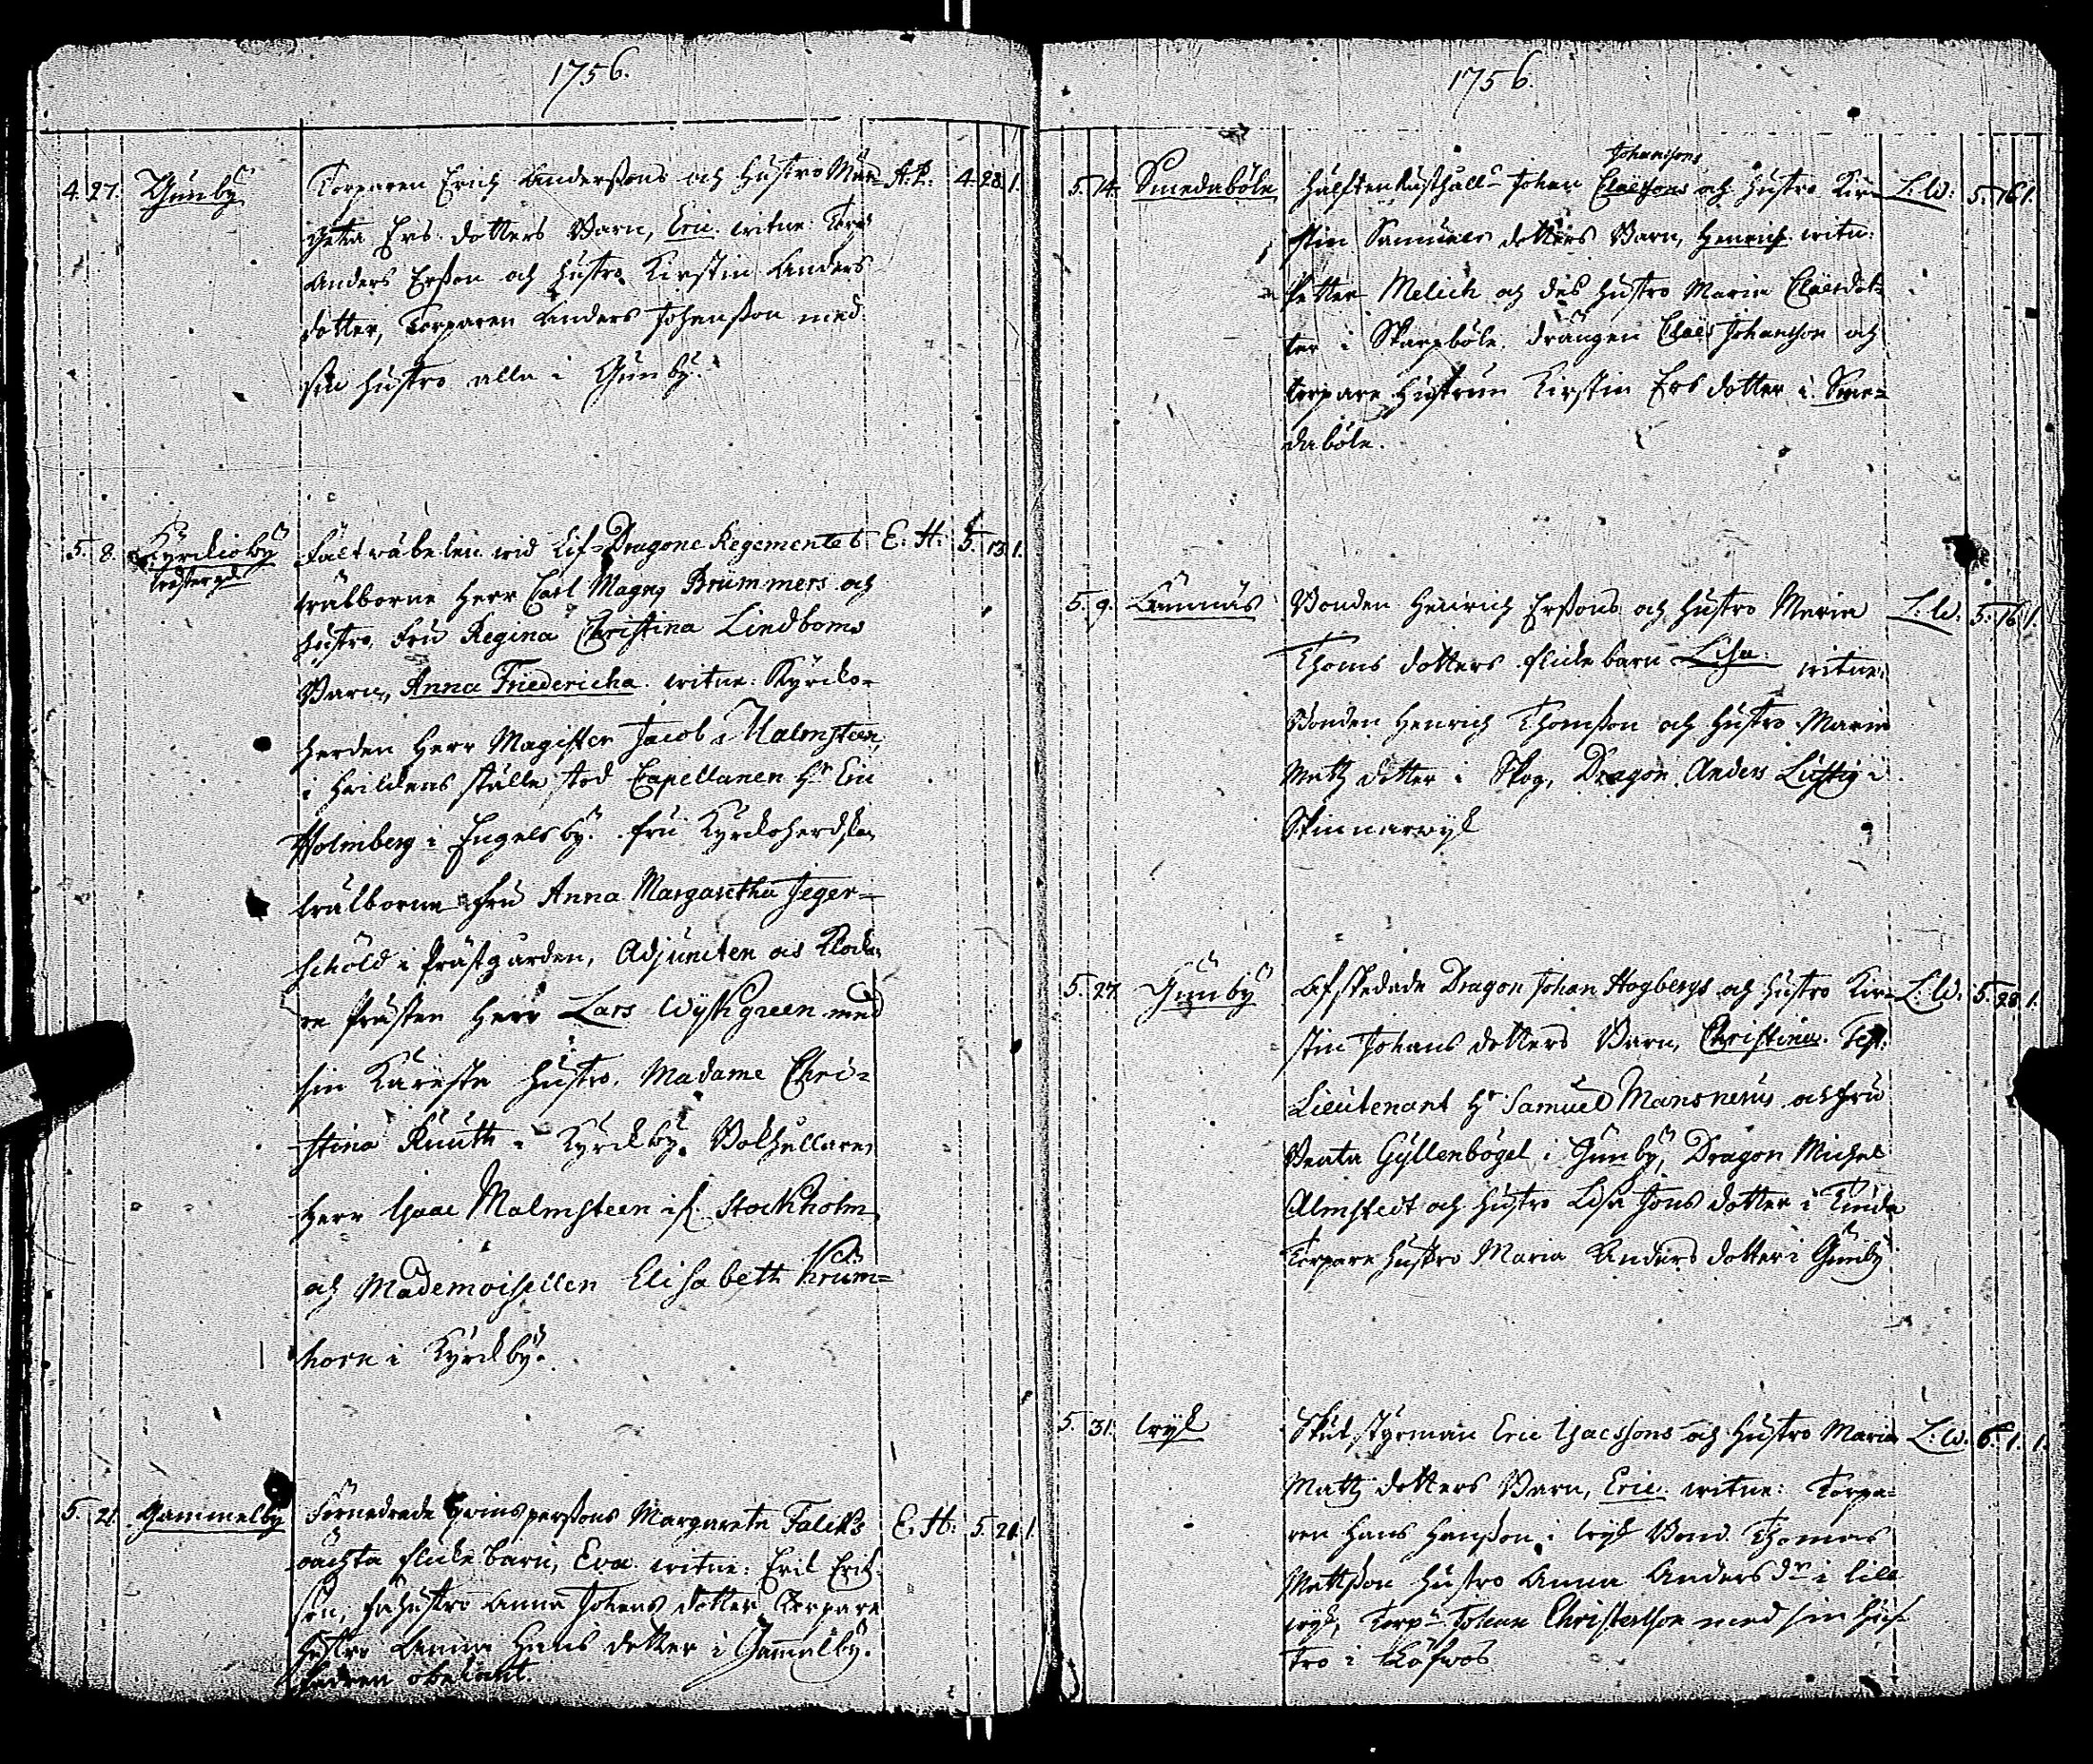 1756.
4. 27. Gunby Torparen Erich Anderssons och hustro Mar= A. P. 4. 28. 1.
getha Ers dotters Barn, Eric. witne Torp
Anders Ersson och hustro Kirstin Anders
dotter, Torparen Anders Johansson med
sin hustro alla i Gunby.
5. 8. Kyrckioby Fältwäbelen wid Lif=Dragone Regementet E. H. 5. 13. 1.
wälborne Herr Carl Magng Brummers och
hustro, Fru Regina Christina Lindboms
Barn, Anna Friedericha. witne: Kyrcko=
herden Herr Magister Jacob Malmsteen,
i hwilckens ställe stod Capellanen Hr Eric
Holmberg i Engelsby. Fru Kyrckoherdskan
wälborne Fru Anna Margaretha Jeger=
schöld i Prästgården, Adjuncten
Prästen Herr Lars Wystgreen med
sin Käresta hustro, Madame Chri=
stina Kuuth i Kyrckby. Bokhållaren
Herr Isaac Malmsteen i Stockholm
och Mademoisellen Elisabeth Krum=
horn i Kyrckby.
5. 21. Gammelby Förnedrade qwinspersons Margareta Falcks E. H. 5. 21. 1.
oächta flicke barn, Eva. witne: Eric Erich
son, hustro Anna Johans dotter Torpare
hustro Anna Hans dotter i Gamelby.
Fadren obekant.
1756.
Johanssons
5. 14. Smedaböle hälftenRusthåll. Johan Claessons och hustro Kir= L. W: 5. 16. 1.
stin Samuels dotters Barn, Henrich. witn:
Petter Melich och des hustro Maria Claesdot=
ter i Skarpböle. drängen Claes Johansson och
torpare Hustrun Kirstin Ers dotter i Sme=
daböle.
5. 9. Lamnäs Bonden Henrich Erssons och hustro Maria L. W. 5. 16. 1.
Thoms dotters flicke barn Lisa. witne:
Bonden Henrich Thomsson och hustro Maria
Matz dotter i Skog, Dragon Anders Lustig i
Skinnarwyk
5. 27. Gunby Afskedade Dragon Johan Hogbergs och hustro Kir= L. W. 5. 28. 1.
stin Johans dotters Barn, Christina. Test.
Lieutenant Hr Samuel Mansnerus och fru
Beata Gyllenbögel i Gunby, Dragon Michel
Almstedt och hustro Lisa Jöns dotter i
Torpare hustro Maria Anders dotter i Gunby
5. 31. Wyk Skutstyrman Eric Isacssons och hustro Maria L. W. 6. 1. 1.
Matz dotters Barn, Eric. witne: Torpa=
ren Hans Hansson i Wyk Bond. Thomas
Mattsson hustro Anna Anders dr i lill
wyk, Torpn Johan Christersson med sin hus=
tro i Löfwos